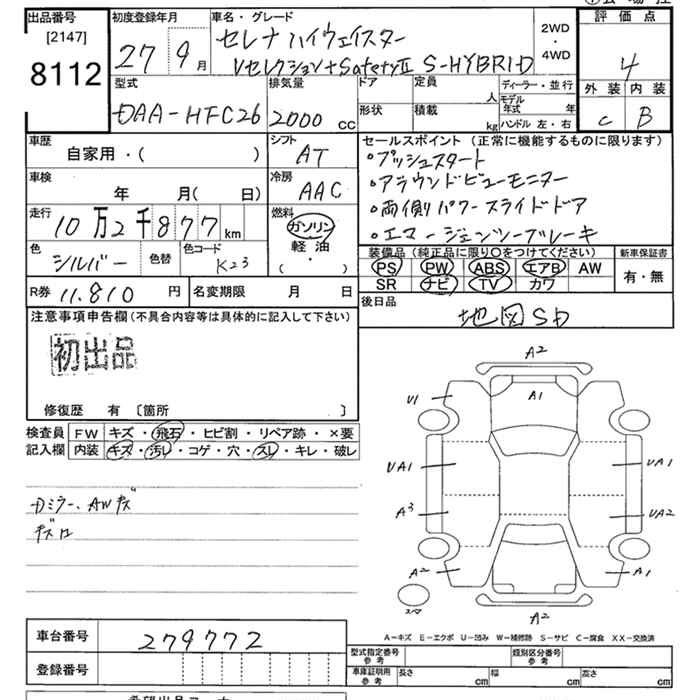 出品番号
[2147]
8112
初度登録年月
27 9月
車名・グレード
セレナ ハイウェイスター
Vセレクション+SafetyⅡ S-HYBRID
2WD
・
4WD
評価点
4
外装 内装
C B
型式
DAA-HFC26
排気量
2000 cc
ドア
形状
定員
人
積載
kg
ディーラー・並行
モデル年式 年
ハンドル 左・右
車歴
自家用・( )
シフト
AT
車検
年 月( 日)
冷房
AAC
走行
10万2千877km
燃料
ガソリン
軽油
・
( )
色
シルバー
色替
色コード
K23
R券 11.810 円
名変期限 月 日
セールスポイント(正常に機能するものに限ります)
・プッシュスタート
・アラウンドビューモニター
・両側パワースライドドア
・エマージェンシーブレーキ
装備品(純正品に限り○をつけてください)
PS PW ABS エアB AW
SR ナビ TV カワ
新車保証書
有・無
後日品
地図SD
注意事項申告欄(不具合内容等は具体的に記入して下さい)
初出品
修復歴 有 〔箇所 〕
検査員記入欄
FW キズ・飛石・ヒビ割・リペア跡・×要
内装 キズ・汚レ・コゲ・穴・スレ・キレ・破レ
Dミラー、AWキズ
A2
A1
U1
UA1
UA1
A3
UA2
A2
A1
スペア
A2
A-キズ E-エクボ U-凹み W-補修跡 S-サビ C-腐食 XX-交換済
車台番号 279772
登録番号
型式指定番号 参考
類別区分番号 参考
車庫証明用 参考
長さ cm
幅 cm
高さ cm